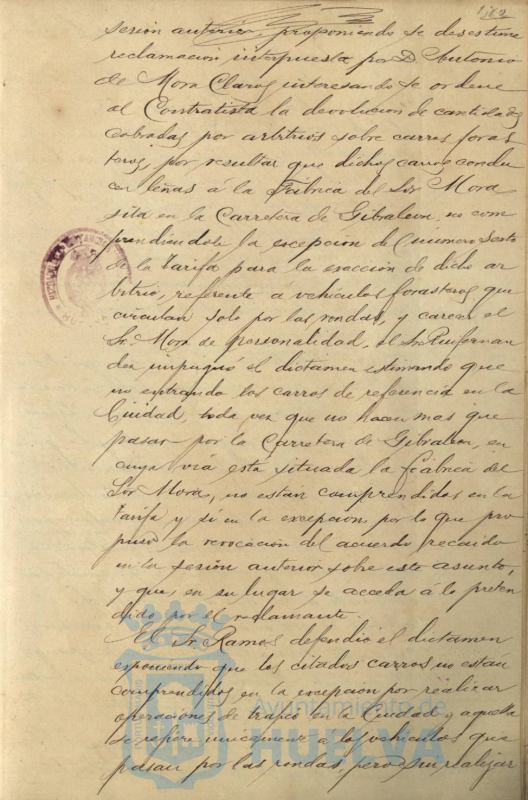 sesión anterior, proponiendo se desestime
reclamación interpuesta por D. Antonio
de Mora Claros interesando se ordene
al Contratista la devolución de cantidades
cobradas por arbitrios sobre carros foras
teros, por resultar que dichos carros condu
cen leñas á la Fábrica del Sor Mora
sita en la Carretera de Gibraleon, no com
prendiéndole la excepción del número sexto
de la Tarifa para la exacción de dicho ar
bitrio, referente á vehículos forasteros que
circulan solo por las rondas, y carece el
Sr. Mora de personalidad, el Sr. Ruifernan
dez impugnó el dictamen estimando que
no entrando los carros de referencia en la
Ciudad, toda vez que no hacen mas que
pasar por la Carretera de Gibraleon, en
cuya vía está situada la fábrica del
Sor Mora, no están comprendidos en la
Tarifa y sí en la excepción, por lo que pro
puso la revocación del acuerdo recaido
en la sesión anterior sobre este asunto,
y que en su lugar se acceda á lo preten
dido por el reclamante.
El Sr. Ramos defendió el dictamen
exponiendo que los citados carros no están
comprendidos en la excepción por realizar
operaciones de trafico en la Ciudad y aquella
se refiere unicamente a los vehículos que
pasan por las rondas, pero sin realizar
Ayuntamiento de
HUELVA